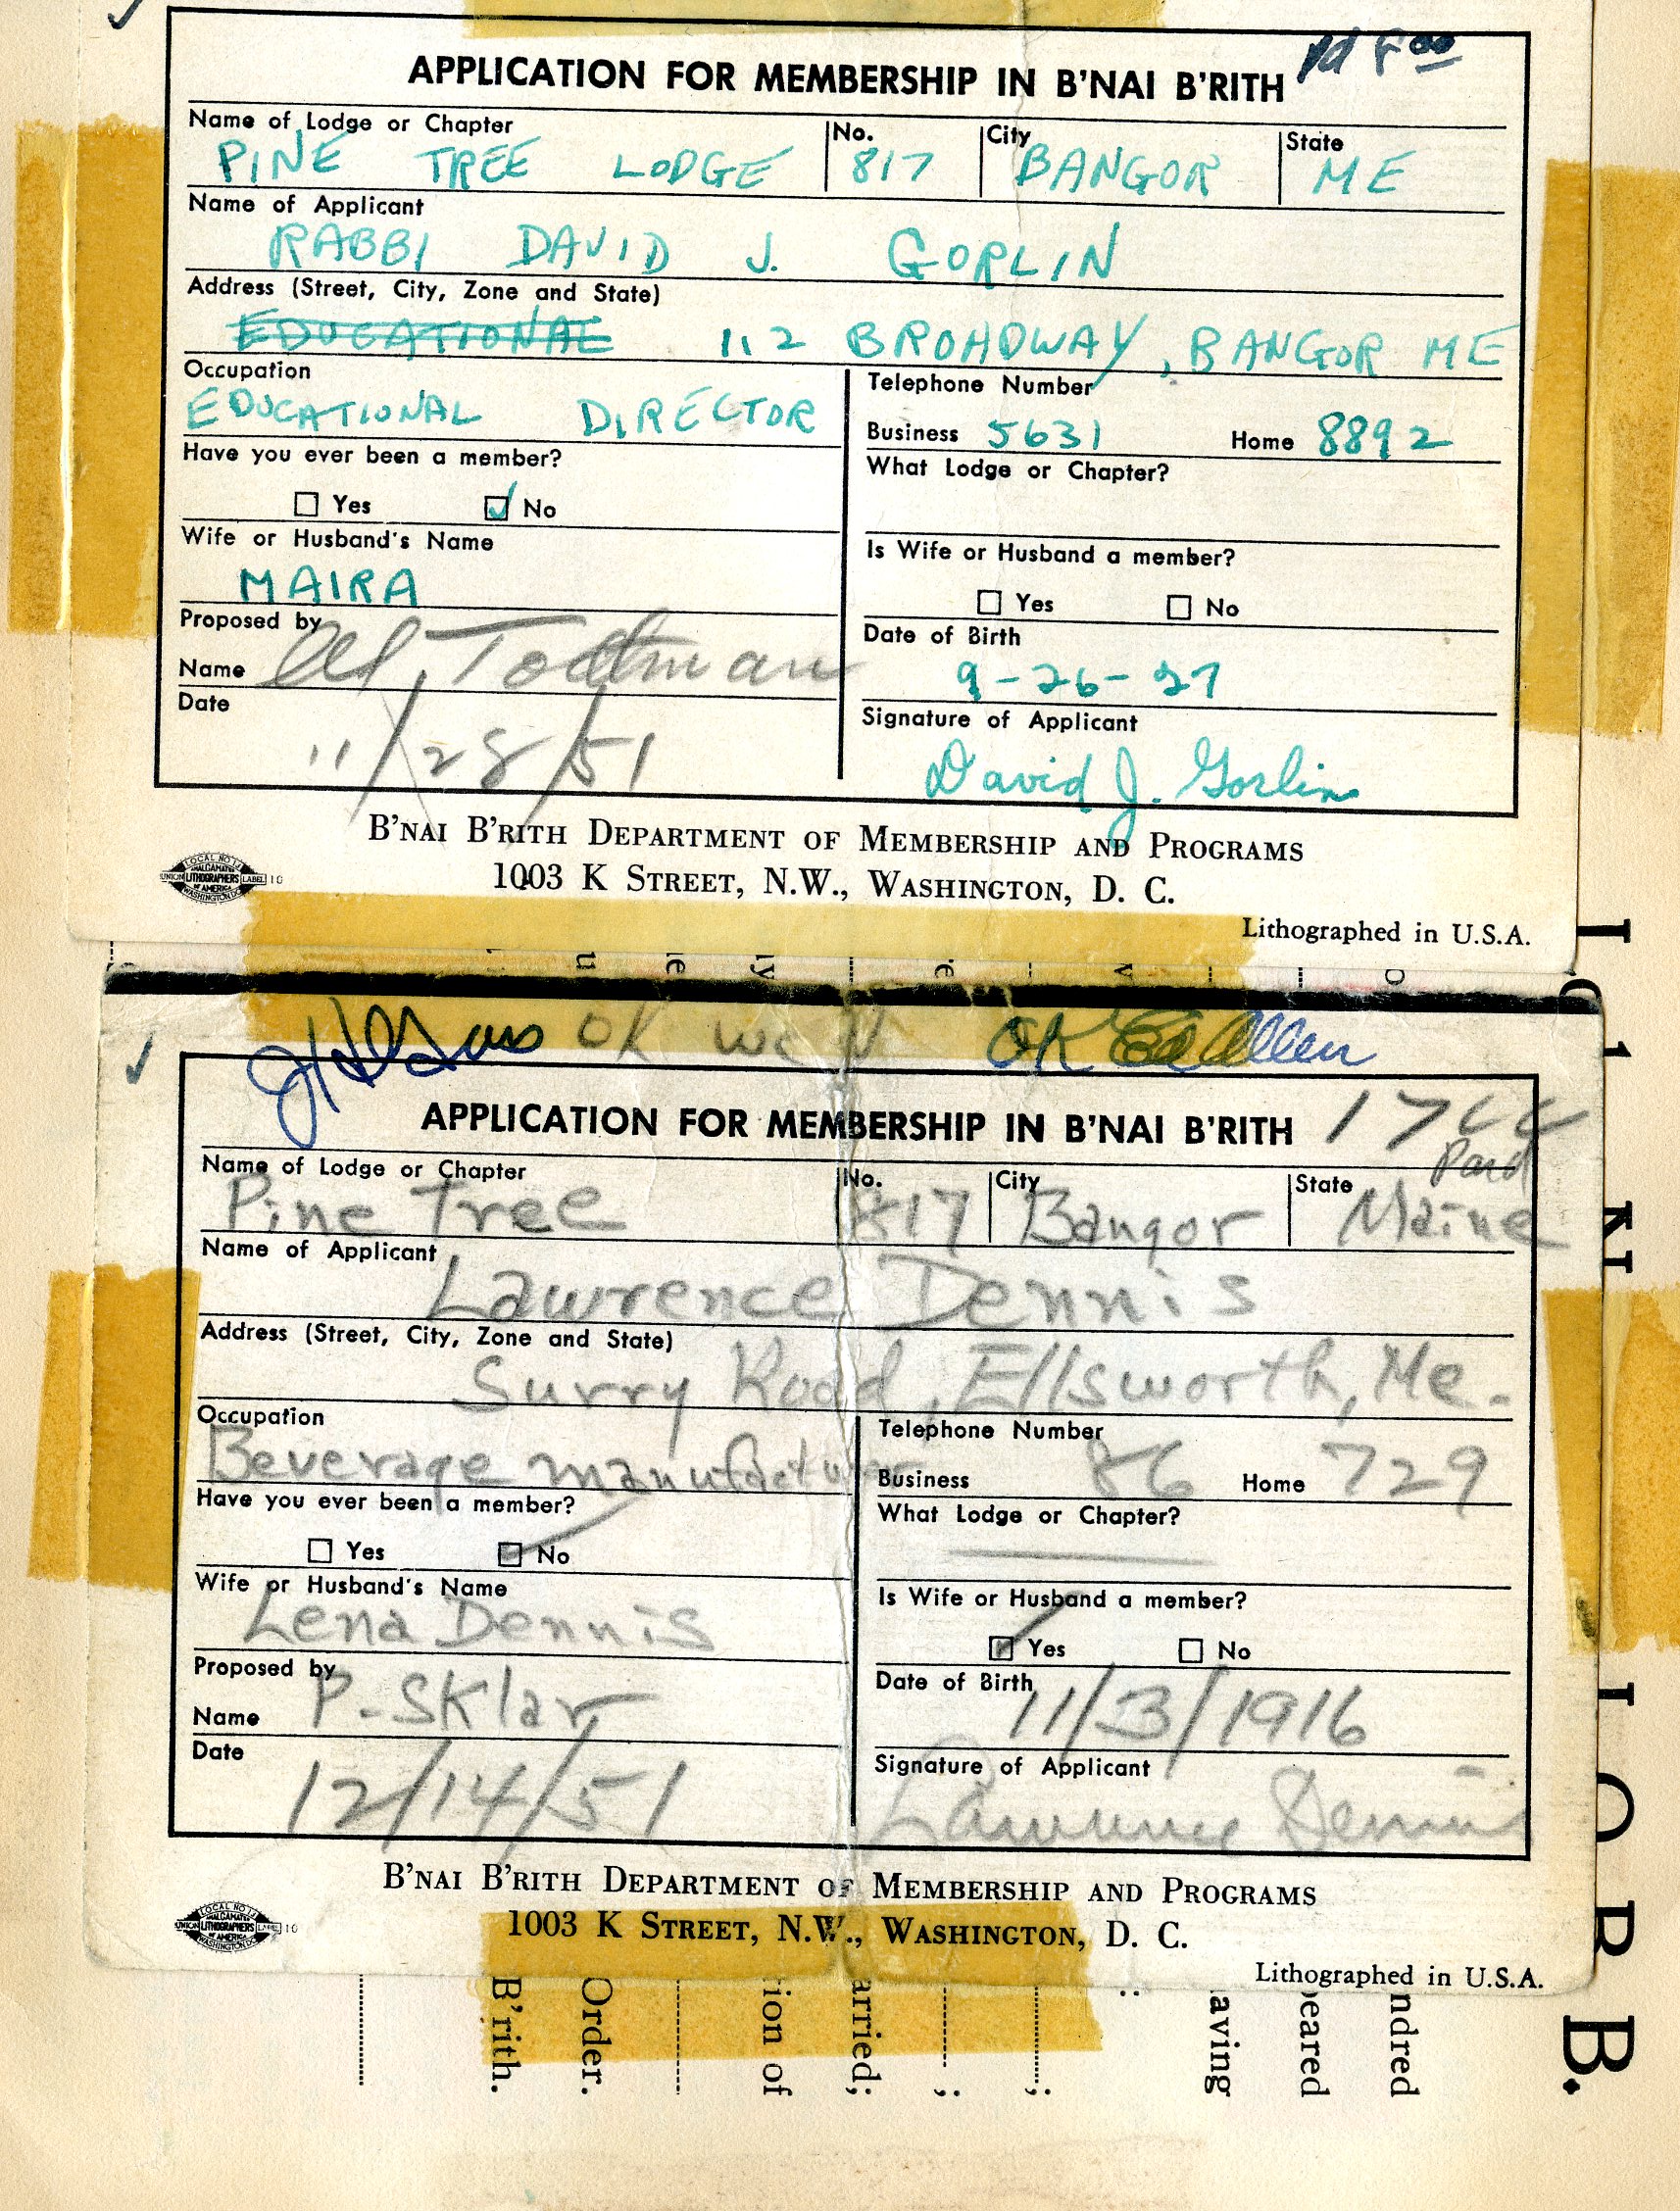 pd 8 00
APPLICATION FOR MEMBERSHIP IN B'NAI B'RITH
Name of Lodge or Chapter No. City State
PINE TREE LODGE 817 BANGOR ME
Name of Applicant
RABBI DAVID J. GORLIN
Address (Street, City, Zone and State)
EDUCATIONAL 112 BROADWAY, BANGOR ME
Occupation Telephone Number
EDUCATIONAL DIRECTOR Business 5631 Home 8892
Have you ever been a member? What Lodge or Chapter?
Yes No
Wife or Husband's Name Is Wife or Husband a member?
MAIRA Yes No
Proposed by Date of Birth
Name Al Toltman 9-26-27
Date Signature of Applicant
11/28/51 David J. Gorlin
B'NAI B'RITH DEPARTMENT OF MEMBERSHIP AND PROGRAMS
1003 K STREET, N.W., WASHINGTON, D. C.
LOCAL NO 13 AMALGAMATED LITHOGRAPHERS OF AMERICA WASHINGTON DC UNION LABEL 10
Lithographed in U.S.A.
OK OK Ed Allen
APPLICATION FOR MEMBERSHIP IN B'NAI B'RITH 17 00
Paid
Name of Lodge or Chapter No. City State
Pine Tree 817 Bangor Maine
Name of Applicant
Lawrence Dennis
Address (Street, City, Zone and State)
Surry Road, Ellsworth, Me.
Occupation Telephone Number
Beverage manufacturer Business 86 Home 729
Have you ever been a member? What Lodge or Chapter?
Yes No
Wife or Husband's Name Is Wife or Husband a member?
Lena Dennis Yes No
Proposed by Date of Birth
Name P. Sklar 11/3/1916
Date Signature of Applicant
12/14/51 Lawrence Dennis
B'NAI B'RITH DEPARTMENT OF MEMBERSHIP AND PROGRAMS
1003 K STREET, N.W., WASHINGTON, D. C.
LOCAL NO 13 AMALGAMATED LITHOGRAPHERS OF AMERICA WASHINGTON DC UNION LABEL 10
Lithographed in U.S.A.
B.
ndred
eared
aving
arried;
ion of
Order.
B'rith.